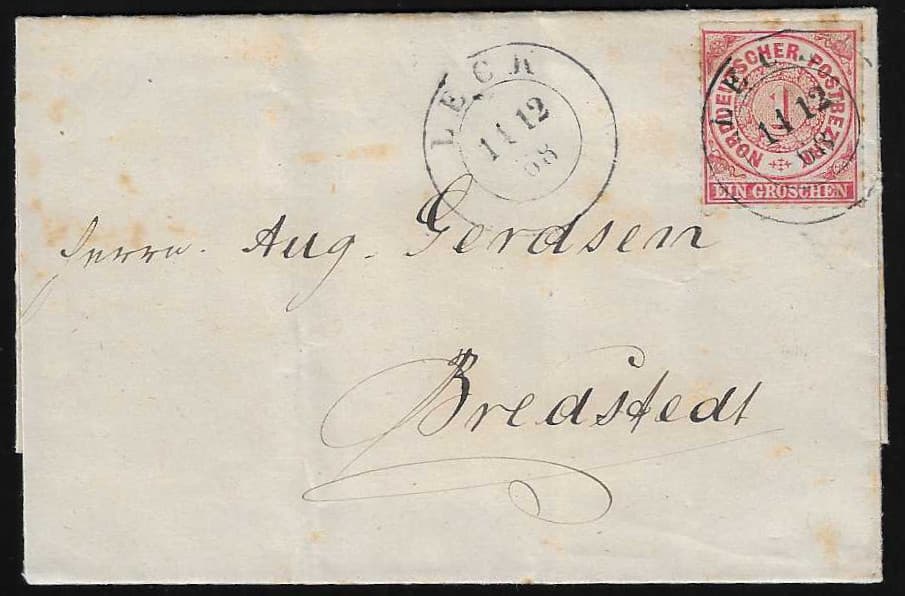 LECK
11 12
68
NORDDEUTSCHER POSTBEZIRK
1
EIN GROSCHEN
LECK
11 12
68
Herrn. Aug. Gerdsen
Bredstedt